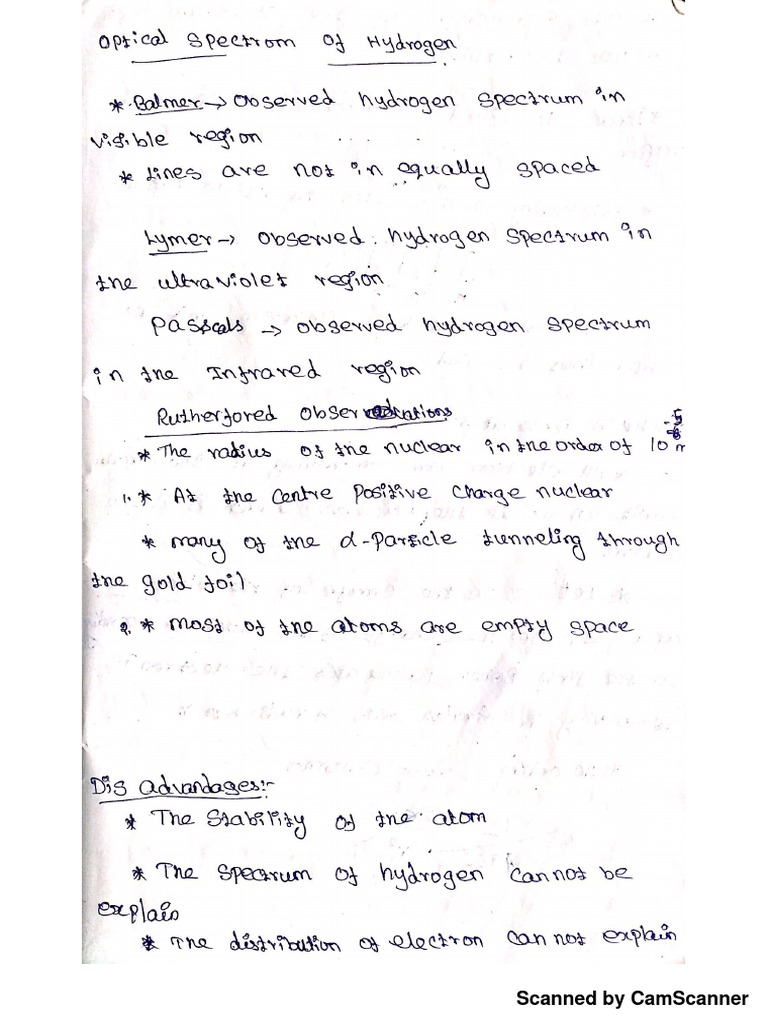 Optical Spectrom of Hydrogen
* Balmer → Observed hydrogen spectrum in
visible region
* Lines are not in equally spaced
Lymer → Observed hydrogen spectrum in
the ultraviolet region
→ observed hydrogen spectrum
in the Infrared region
Rutherfored
* The radius of the nuclear in the order of 10
1. * At the centre positive charge nuclear
* many of the α-Particle tunneling through
the gold foil
2. * most of the atoms are empty space
Dis advandages:-
* The Stability of the atom
* The spectrum of hydrogen cannot be
explain
* The distribution of electron can not explain
Scanned by CamScanner